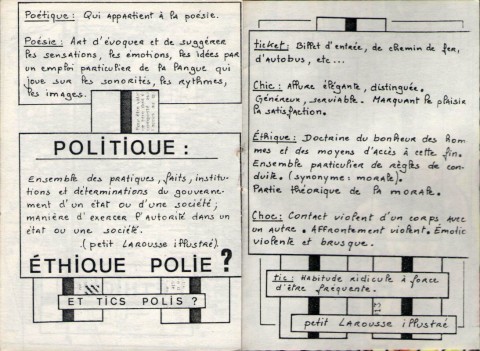 Poétique : Qui appartient à la poésie.
Poésie : Art d'évoquer et de suggérer
les sensations, les émotions, les idées par
un emploi particulier de la langue qui
joue sur les sonorités, les rythmes,
les images.
POLITIQUE :
Ensemble des pratiques, faits, institu-
tions et déterminations du gouverne-
ment d'un état ou d'une société;
manière d'exercer l'autorité dans un
état ou une société.
(petit Larousse illustré).
ÉTHIQUE POLIE ?
ET TICS POLIS ?
ticket : Billet d'entrée, de chemin de fer,
d'autobus, etc...
Chic : Allure élégante, distinguée.
Généreux, serviable. Marquant le plaisir
la satisfaction.
Éthique : Doctrine du bonheur des hom
mes et des moyens d'accès à cette fin.
Ensemble particulier de règles de con-
duite. (synonyme : morale).
Partie théorique de la morale.
Choc : Contact violent d'un corps avec
un autre. Affrontement violent. Emotion
violente et brusque.
tic : Habitude ridicule à force
d'être fréquente.
petit Larousse illustré